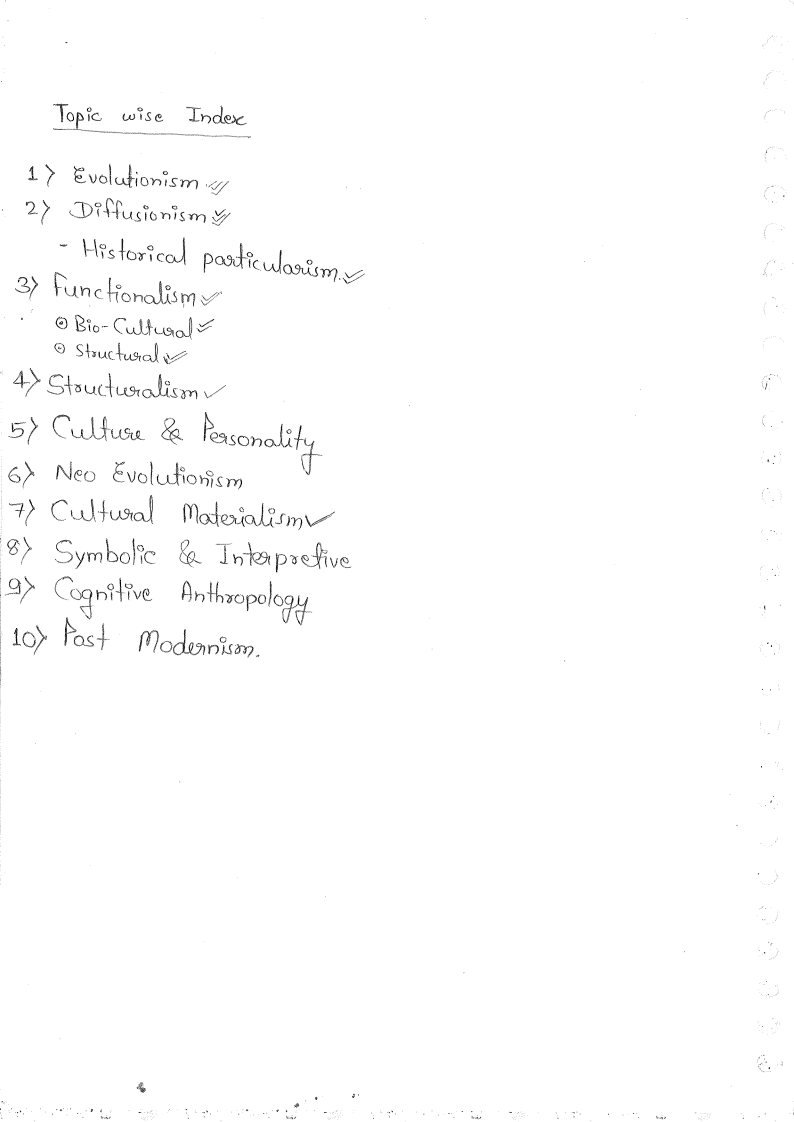 Topic wise Index
1> Evolutionism
2> Diffusionism
- Historical particularism.
3> Functionalism
Bio-Cultural
Structural
4> Structuralism
5> Culture & Personality
6> Neo Evolutionism
7> Cultural Materialism
8> Symbolic & Interpretive
9> Cognitive Anthropology
10> Post Modernism.